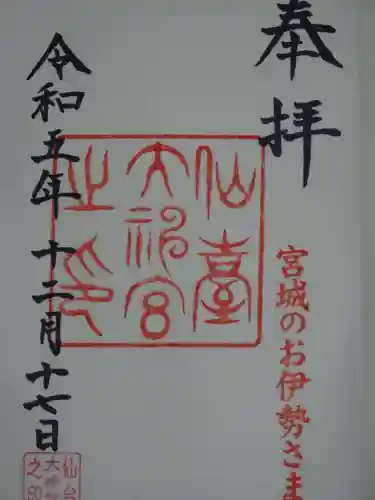 奉拝
宮城のお伊勢さま
仙臺
大神宮
之印
令和五年十二月十七日
仙台
大神宮
之印